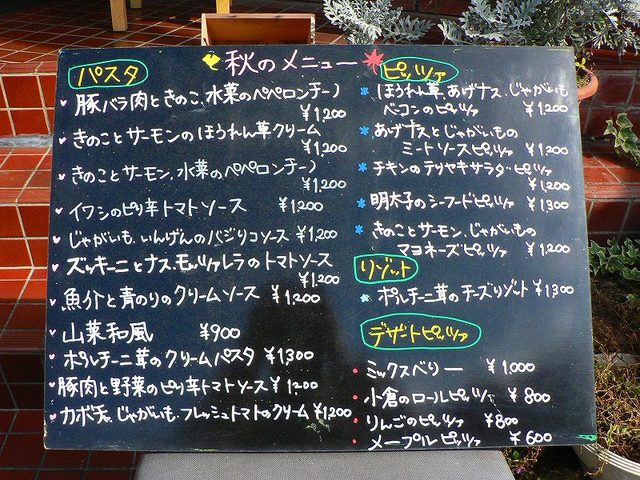 秋のメニュー
パスタ
豚バラ肉ときのこ、水菜のペペロンチーノ
¥1,200
きのことサーモンのほうれん草クリーム
¥1,200
きのことサーモン、水菜のペペロンチーノ
¥1,200
イワシのピリ辛トマトソース ¥1,200
じゃがいも、いんげんのバジリコソース ¥1,200
ズッキーニとナス、モッツァレラのトマトソース
¥1,200
魚介と青のりのクリームソース ¥1,200
山菜和風 ¥900
ポルチーニ茸のクリームパスタ ¥1,300
豚肉と野菜のピリ辛トマトソース ¥1200
カボチャ、じゃがいも、フレッシュトマトのクリーム ¥1,200
ピッツァ
ほうれん草、あげナス、じゃがいも
ベーコンのピッツァ ¥1,200
あげナスとじゃがいもの
ミートソースピッツァ ¥1,200
チキンのテリヤキサラダ・ピッツァ
¥1,200
明太子のシーフードピッツァ ¥1,300
きのことサーモン、じゃがいもの
マヨネーズピッツァ ¥1,200
リゾット
ポルチーニ茸のチーズリゾット ¥1,300
デザートピッツァ
ミックスベリー ¥1,000
小倉のロールピッツァ ¥800
りんごのピッツァ ¥800
メープルピッツァ ¥600